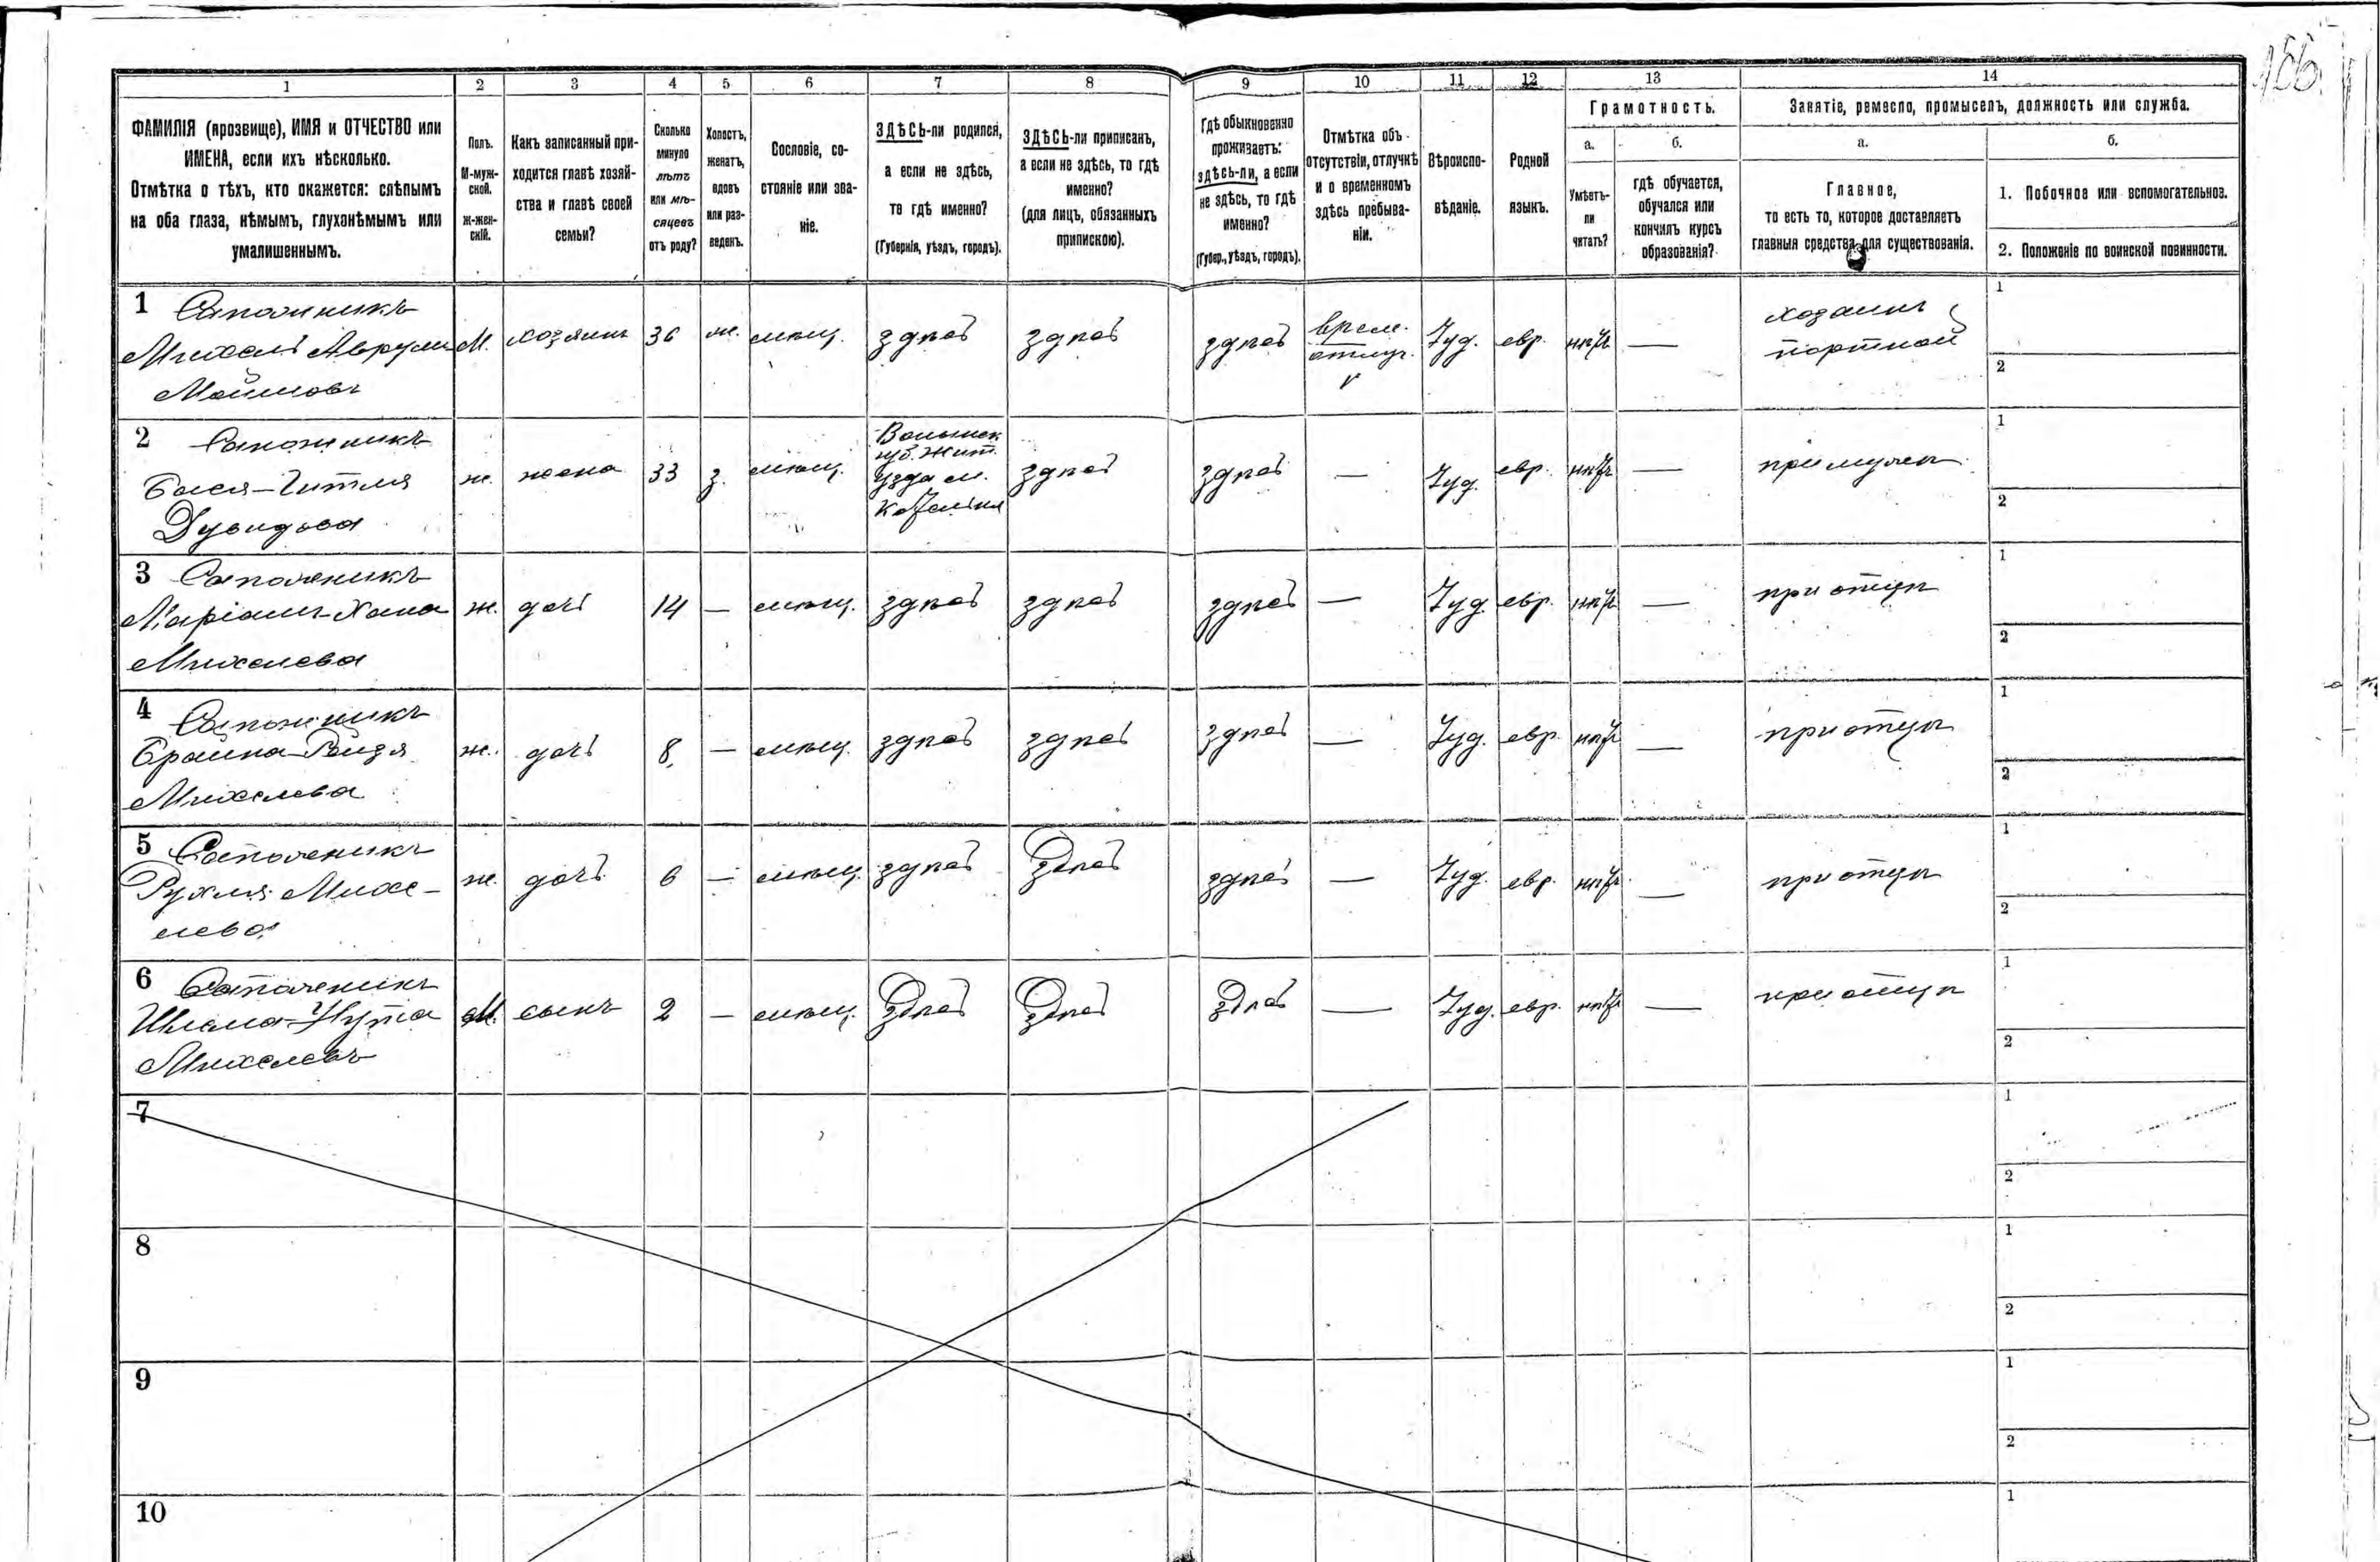 156.
1 2 3 4 5 6 7 8 9 10 11 12 13 14
ФАМИЛІЯ (прозвище), ИМЯ и ОТЧЕСТВО или
ИМЕНА, если ихъ нѣсколько.
Отмѣтка о тѣхъ, кто окажется: слѣпымъ
на оба глаза, нѣмымъ, глухонѣмымъ или
умалишеннымъ.
Полъ.
М-муж-
ской.
Ж-жен-
скій.
Какъ записанный при-
ходится главѣ хозяй-
ства и главѣ своей
семьи?
Сколько
минуло
лѣтъ
или мѣ-
сяцевъ
отъ роду?
Холостъ,
женатъ,
вдовъ
или раз-
веденъ.
Сословіе, со-
стояніе или зва-
ніе.
ЗДѢСЬ-ли родился,
а если не здѣсь,
то гдѣ именно?
(Губернія, уѣздъ, городъ).
ЗДѢСЬ-ли приписанъ,
а если не здѣсь, то гдѣ
именно?
(для лицъ, обязанныхъ
припискою).
Гдѣ обыкновенно
проживаетъ:
здѣсь-ли, а если
не здѣсь, то гдѣ
именно?
(Губер., уѣздъ, городъ).
Отмѣтка объ
отсутствіи, отлучкѣ
и о временномъ
здѣсь пребыва-
ніи.
Вѣроиспо-
вѣданіе.
Родной
языкъ.
Грамотность.
а.
Умѣетъ-
ли
читать?
б.
гдѣ обучается,
обучался или
кончилъ курсъ
образованія?
Занятіе, ремесло, промыселъ, должность или служба.
а.
Главное,
то есть то, которое доставляетъ
главныя средства для существованія.
б.
1. Побочное или вспомогательное.
2. Положеніе по воинской повинности.
1 Сапожникъ
Михель Аврум
Мошковъ
М.
хозяинъ
36
ж.
мѣщ.
здѣсь
здѣсь
здѣсь
врем.
отлуч.
Іуд.
евр.
нѣтъ
—
хозяинъ
портной
1
2
2 Сапожникъ
Бася-Гитля
Дувидова
ж.
жена
33
з.
мѣщ.
Волынск.
губ. Жит.
уѣзда м.
здѣсь
здѣсь
—
Іуд.
евр.
нѣтъ
—
при мужѣ
1
2
3 Сапожникъ
Маріамъ-Хана
Михелева
ж.
дочь
14
—
мѣщ.
здѣсь
здѣсь
здѣсь
—
Іуд.
евр.
нѣтъ
—
при отцѣ
1
2
4 Сапожникъ
Брайна-Рейзя
Михелева
ж.
дочь
8.
—
мѣщ.
здѣсь
здѣсь
здѣсь
—
Іуд.
евр.
нѣтъ
—
при отцѣ
1
2
5 Сапожникъ
Рухля Михе-
лева
ж.
дочь
6
—
мѣщ.
здѣсь
здѣсь
здѣсь
—
Іуд.
евр.
нѣтъ
—
при отцѣ
1
2
6 Сапожникъ
Михелевъ
М.
сынъ
2
—
мѣщ.
здѣсь
здѣсь
здѣсь
—
Іуд.
евр.
нѣтъ
—
при отцѣ
1
2
7
1
2
8
1
2
9
1
2
10
1